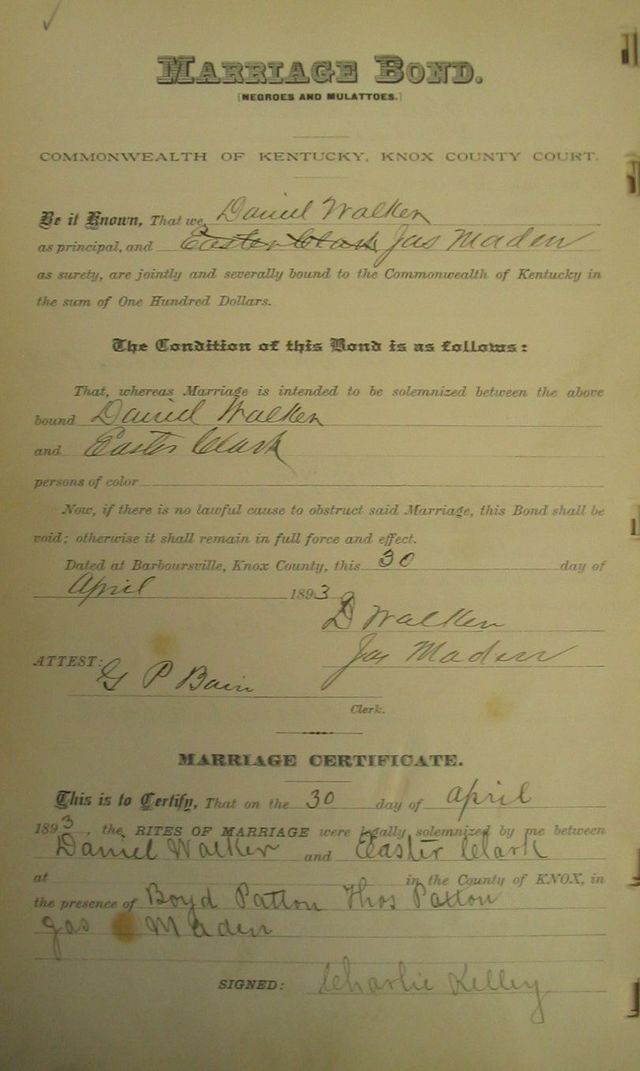 MARRIAGE BOND.
[NEGROES AND MULATTOES.]
COMMONWEALTH OF KENTUCKY, KNOX COUNTY COURT.
Be it Known, That we, Daniel Walker
as principal, and Easter Clark Jas Maden
as surety, are jointly and severally bound to the Commonwealth of Kentucky in
the sum of One Hundred Dollars.
The Condition of this Bond is as follows:
That, whereas Marriage is intended to be solemnized between the above
bound Daniel Walker
and Easter Clark
persons of color
Now, if there is no lawful cause to obstruct said Marriage, this Bond shall be
void; otherwise it shall remain in full force and effect.
Dated at Barboursville, Knox County, this 30 day of
April 1893
D Walker
Jas Maden
ATTEST:
G P Bain
Clerk.
MARRIAGE CERTIFICATE.
This is to Certify, That on the 30 day of April
1893, the RITES OF MARRIAGE were legally solemnized by me between
Daniel Walker and Easter Clark
at in the County of KNOX, in
the presence of Boyd Patton Thos Patton
Jas Maden
SIGNED: Charlie Kelley